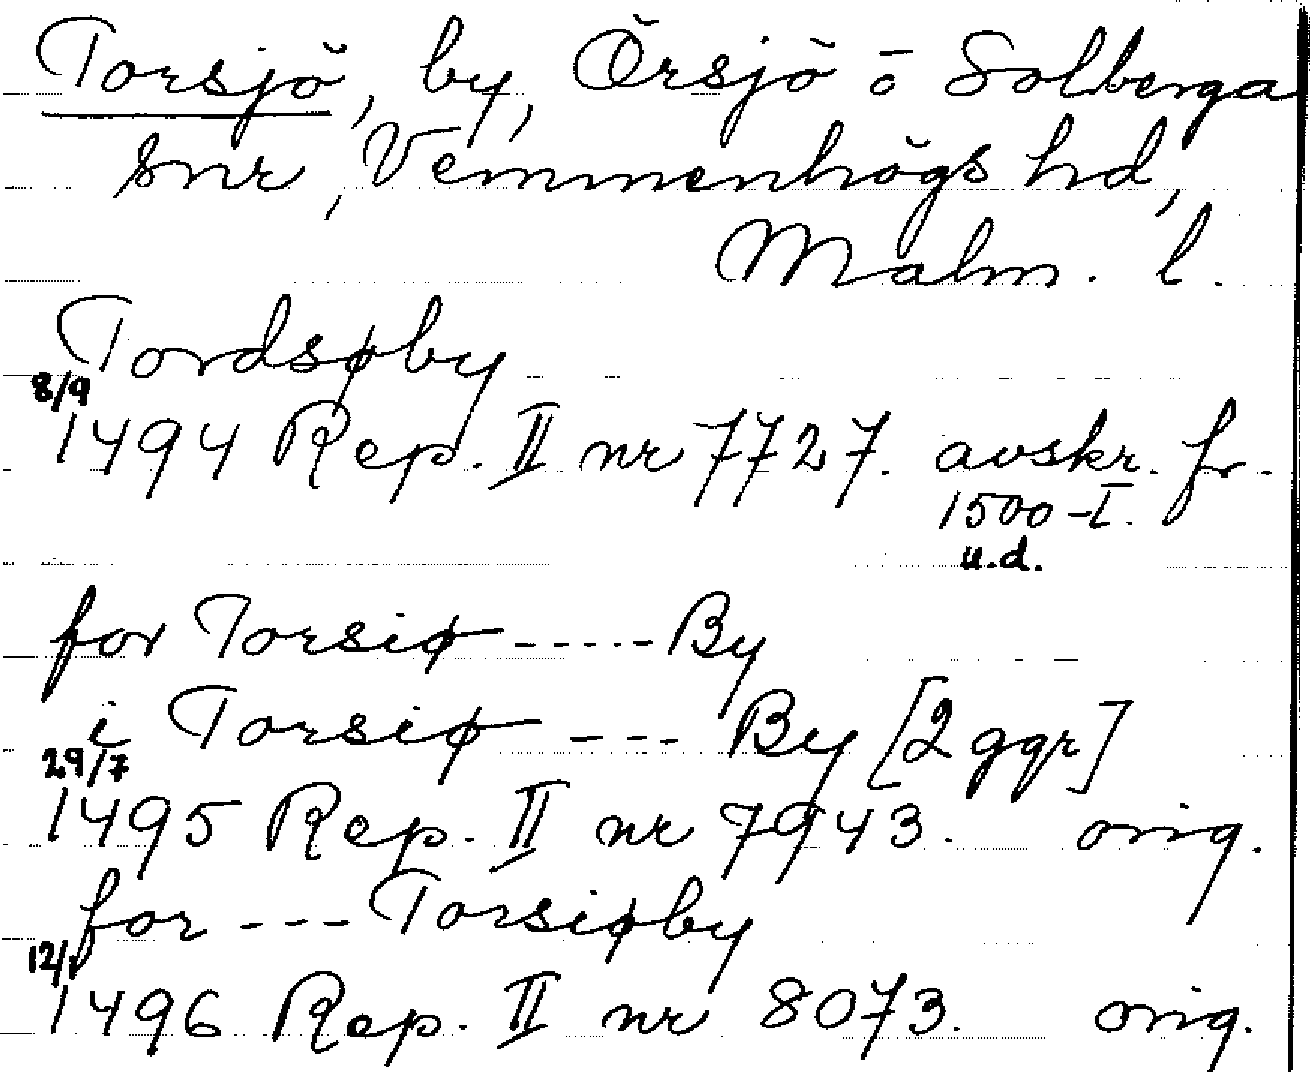 Torsjö, by, Örsjö o Solberga
snr, Vemmenhögs hd,
Malm. l.
Tordsøby
8/9
1494 Rep. II nr 7727. avskr. fr.
1500-t.
u.d.
for Torsiø ----- By
i Torsiø --- By [2 ggr]
29/7
1495 Rep. II nr 7943. orig.
for --- Torsiøby
12/1
1496 Rep. II nr 8073. orig.